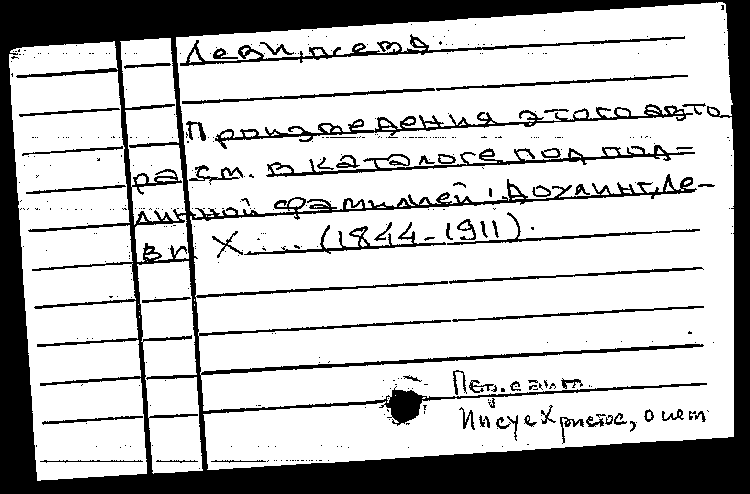 Леви, псевд.
Произведения этого авто
ра см. в каталоге под под=
линной фамилией: Доулинг, Ле-
ви Х.... (1844-1911).
Пер. с англ.
Иисус Христос, о нем